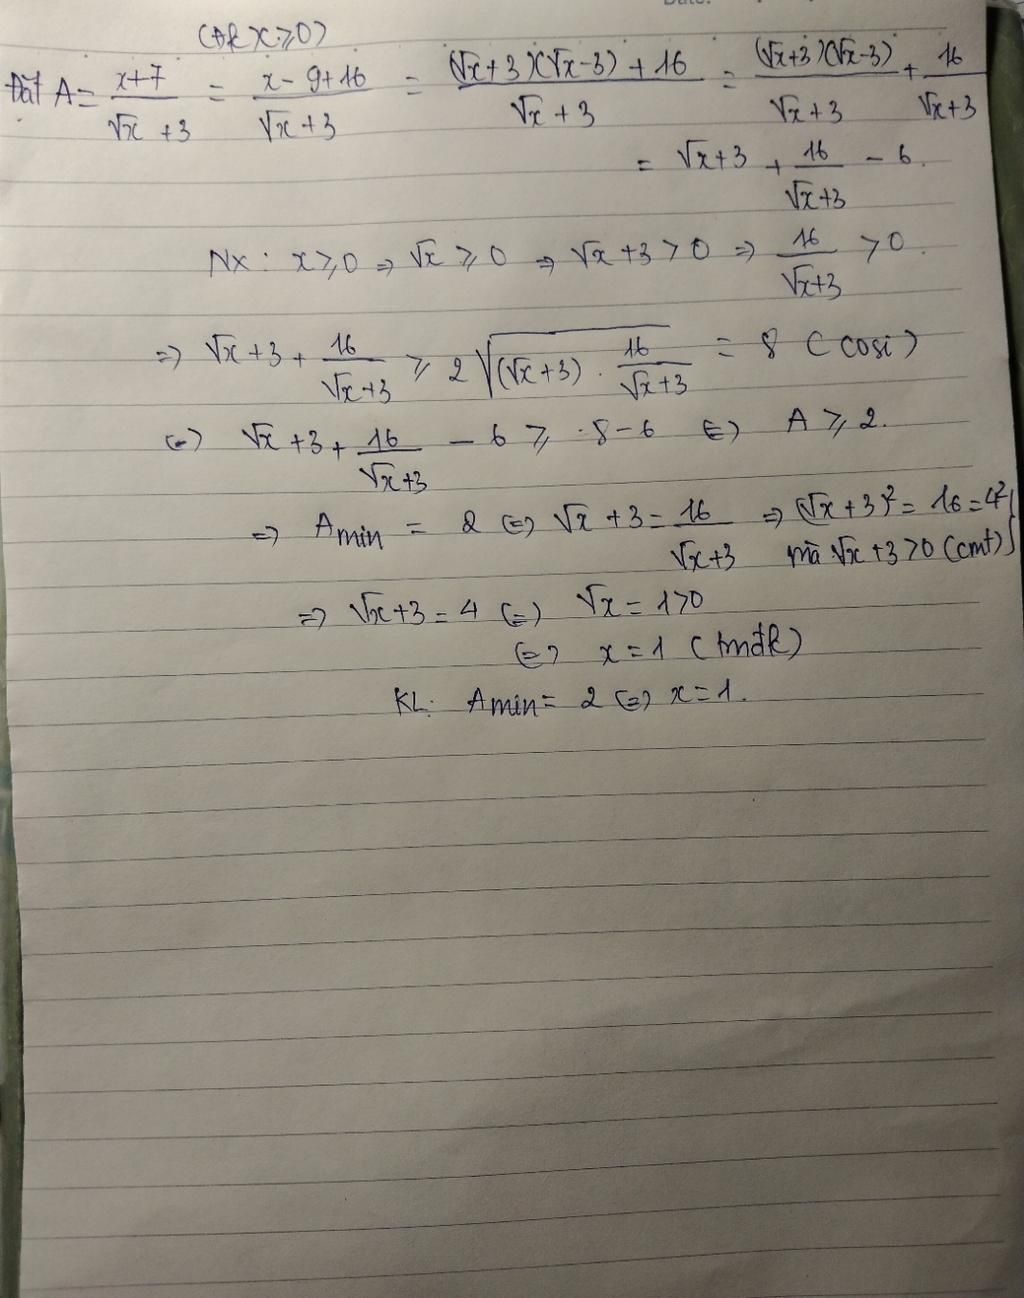 (ĐK x ⩾ 0)
Đặt A = (x+7)/(√x + 3) = (x - 9 + 16)/(√x + 3) = ((√x + 3)(√x - 3) + 16)/(√x + 3) = ((√x+3)(√x-3))/(√x+3) + 16/(√x+3)
= √x+3 + 16/(√x+3) - 6.
Nx: x ⩾ 0 => √x ⩾ 0 => √x + 3 > 0 => 16/(√x+3) > 0.
=> √x + 3 + 16/(√x+3) ⩾ 2√((√x+3) . 16/(√x+3)) = 8 (cosi)
(=) √x + 3 + 16/(√x+3) - 6 ⩾ 8 - 6 (=) A ⩾ 2.
=> Amin = 2 (=) √x + 3 = 16/(√x+3) => (√x + 3)² = 16 = 4²
mà √x + 3 > 0 (cmt) }
=> √x + 3 = 4 (=) √x = 1 > 0
(=) x = 1 (tmđk)
KL: Amin = 2 (=) x = 1.